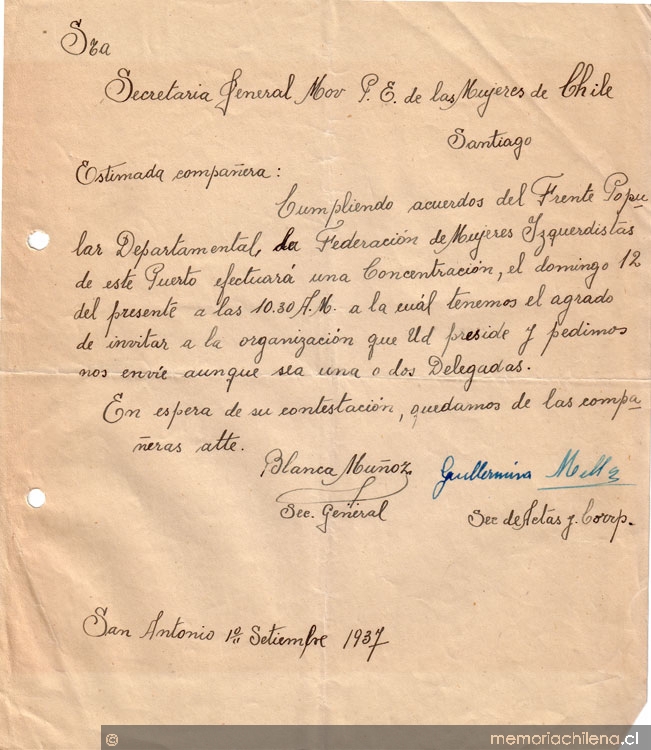 Sra
Secretaria General Mov P. E. de las Mujeres de Chile
Santiago
Estimada compañera:
Cumpliendo acuerdos del Frente Popu-
lar Departamental, la Federación de Mujeres Izquerdistas
de este Puerto efectuará una Concentración, el domingo 12
del presente a las 10.30 A.M. a la cuál tenemos el agrado
de invitar a la organización que Ud preside y pedimos
nos envíe aunque sea una o dos Delegadas.
En espera de su contestación, quedamos de las compa-
ñeras atte.
Blanca Muñoz Guillermina Mella
Sec. General Sec de Actas y Corrp.
San Antonio 1º Setiembre 1937
© memoriachilena.cl